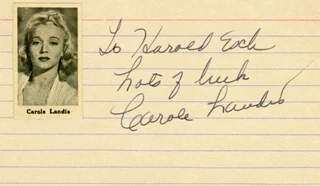 Carole Landis
To Harold Esch
Lots of luck
Carole Landis